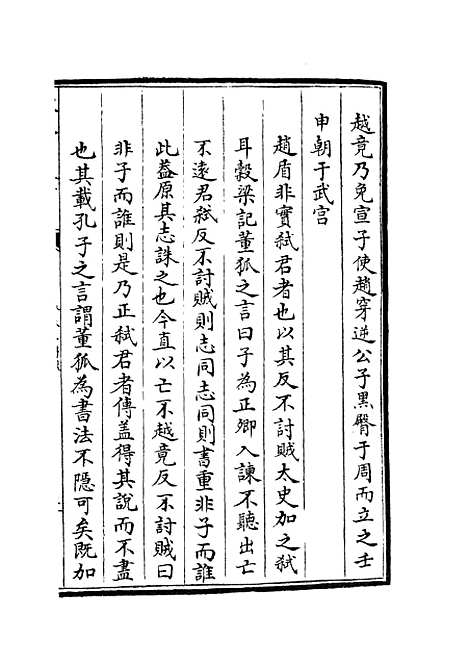 越竟乃免宣子使趙穿逆公子黑臀于周而立之壬
申朝于武宫
趙盾非實弑君者也以其反不討賊太史加之弑
耳穀梁記董狐之言曰子為正卿入諫不聽出亡
不逺君弑反不討賊則志同志同則書重非子而誰
此葢原其志誅之也今直以亡不越竟反不討賊曰
非子而誰則是乃正弑君者傳盖得其說而不盡
也其載孔子之言謂董狐為書法不隠可矣既加